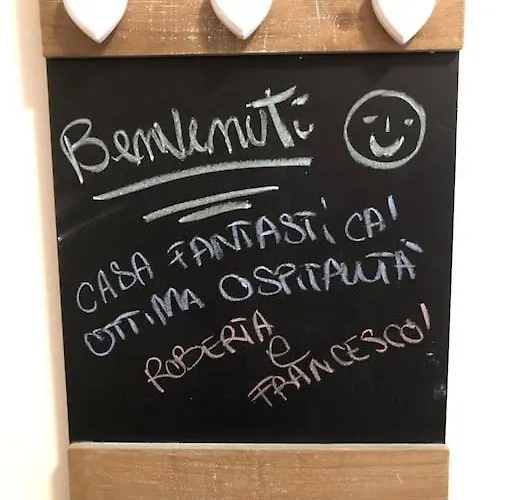 Benvenuti
CASA FANTASTICA!
OTTIMA OSPITALITÀ
ROBERTA
e
FRANCESCO!